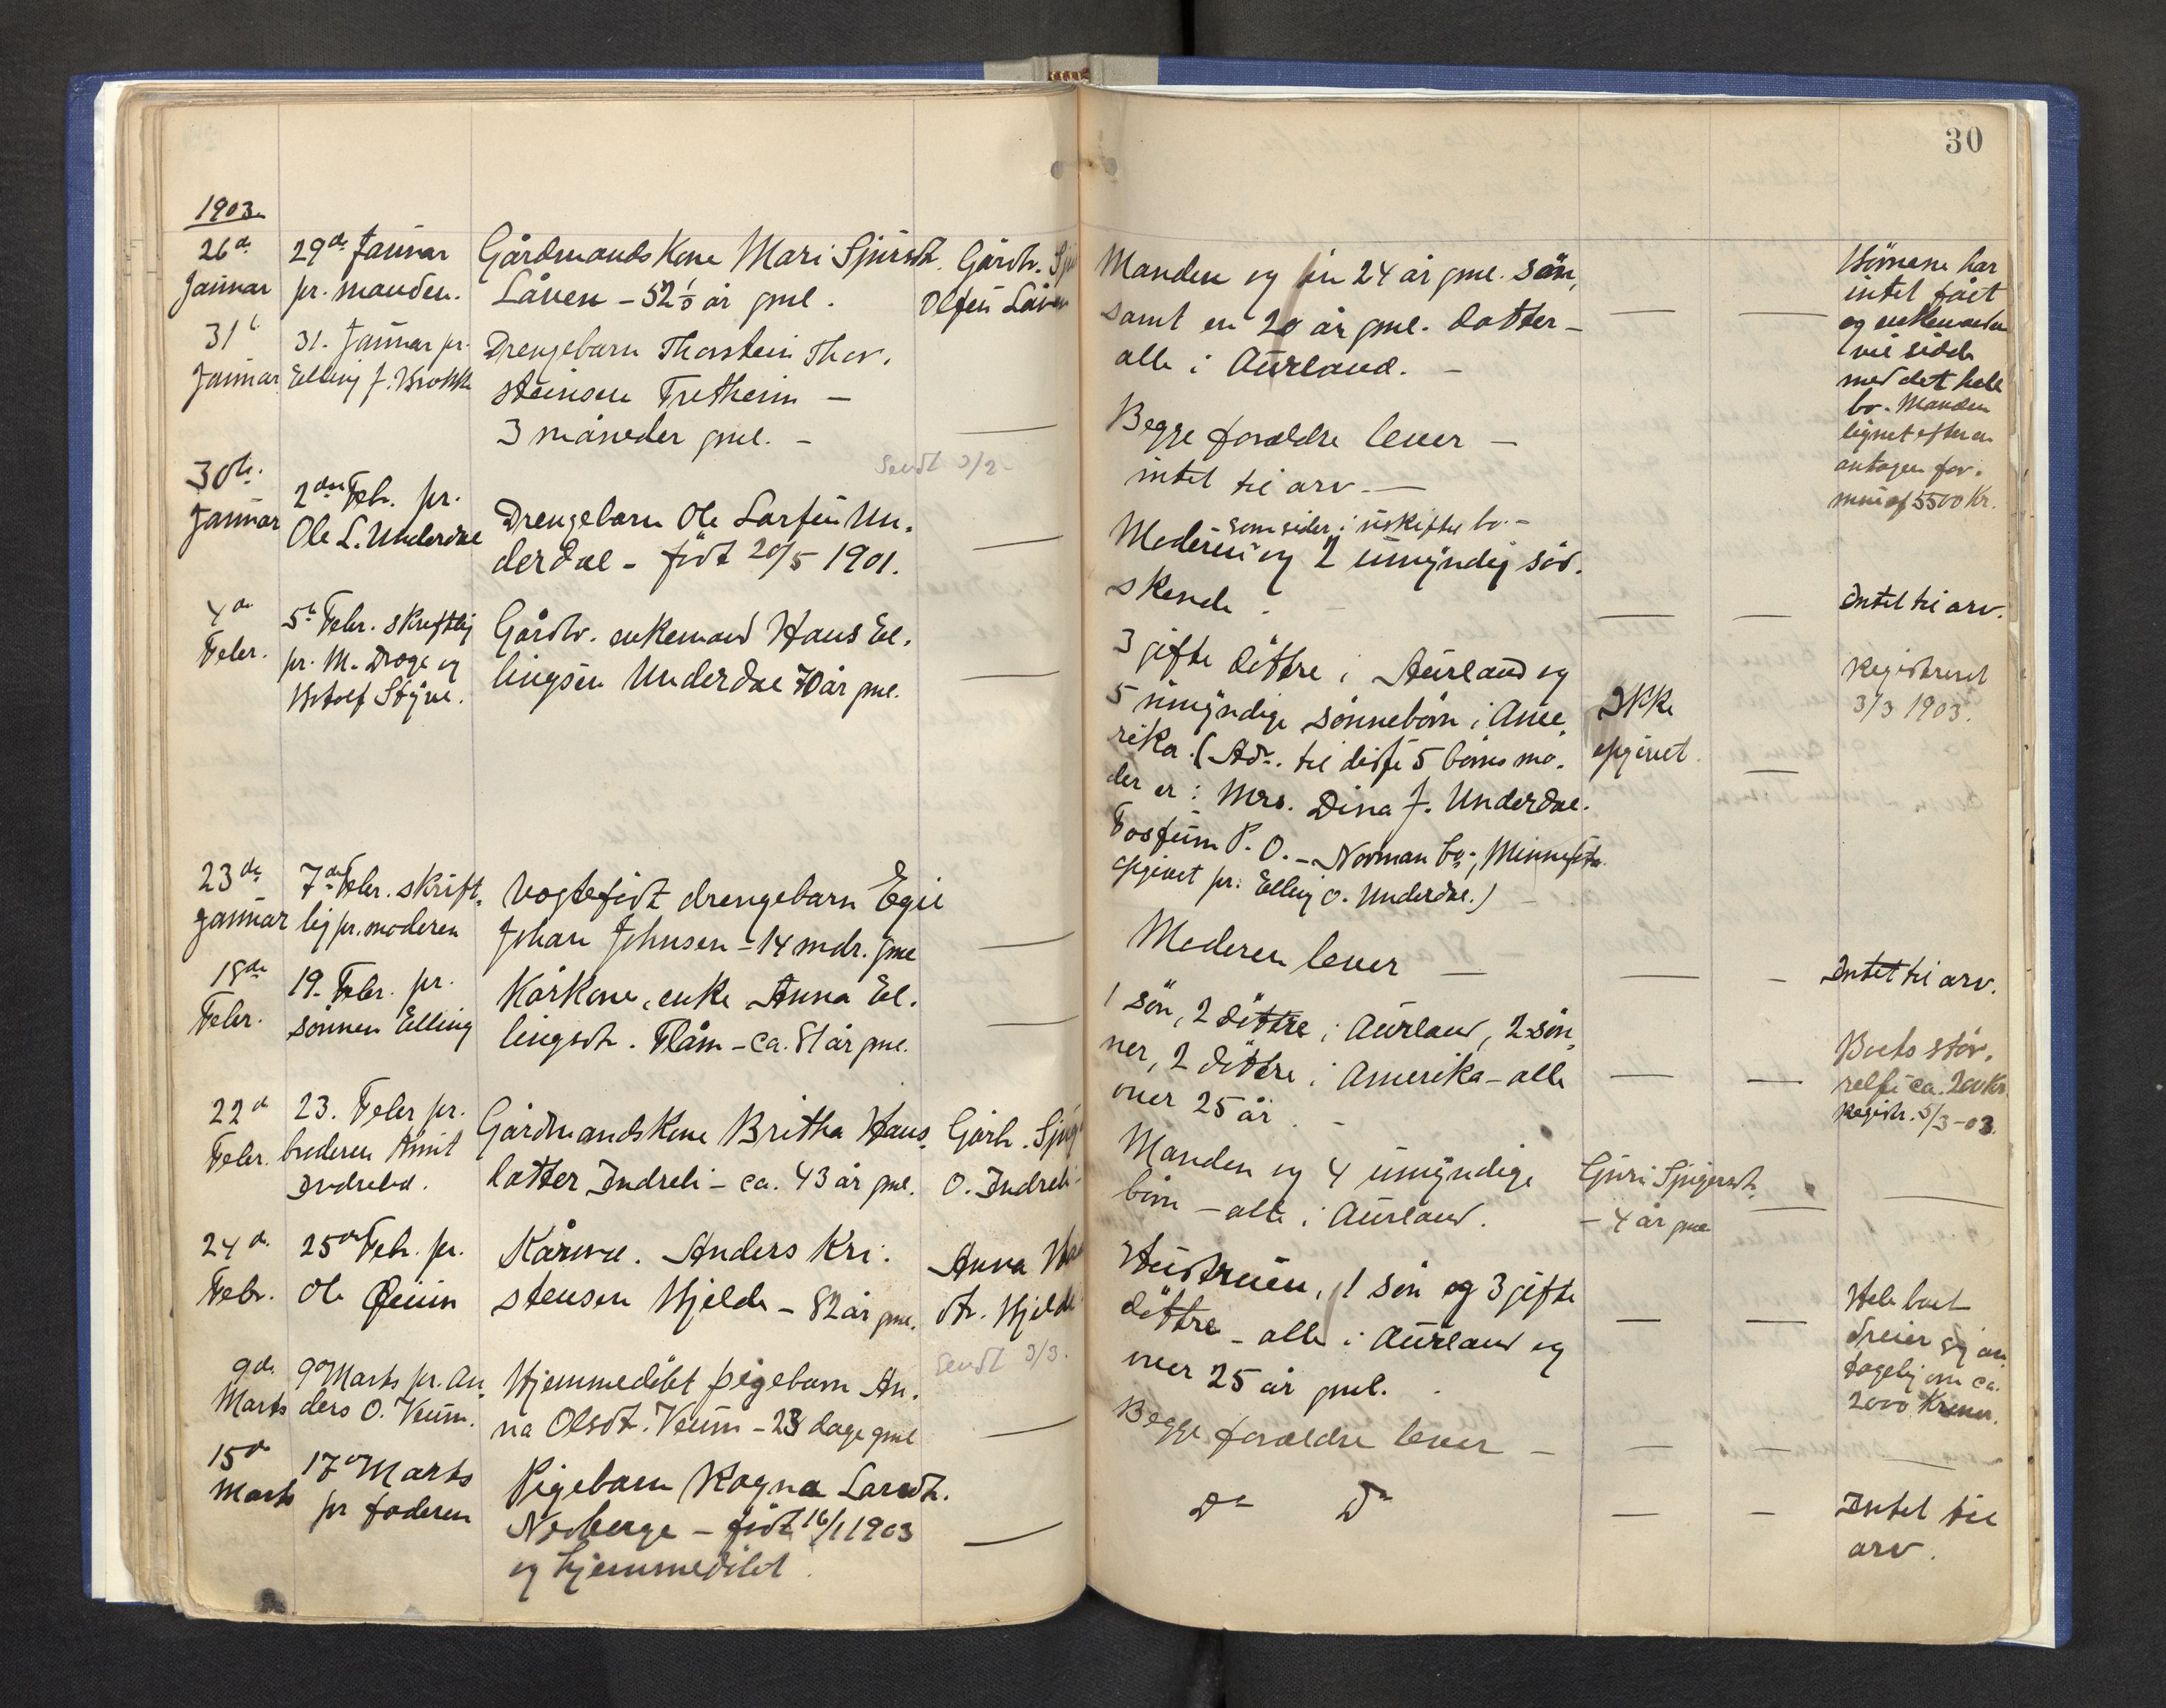 30
1903.
26de
Januar
29de Januar
pr. manden.
Gårdmandskone Mari Sjursdt.
Låven - 52 1/2 år gml.
Gårdbr. Sju
Olsen Låven
Manden og en 24 år gml. søn,
samt en 20 år gml. datter -
alle i Aurland. -
Börnene har
intet fået
og enkemanden
vil sidde
med det hele
bo. Manden
lignet efter en
antagen for-
mue af 5500 Kr.
31t
Januar
31. Januar pr.
Elling J. Brekke
Drengebarn Thorstein Thor-
steinsen Fretheim -
3 måneder gml. -
Begge forældre lever -
intet til arv. -
Sendt 3/2 -
30te
Januar
2den Febr. pr.
Ole L. Underdal
Drengebarn Ole Larsen Un-
derdal - födt 20/5 1901.
som sider i uskiftet bo. -
Moderen og 2 umyndig söd-
skende.
Intet til arv.
4de
Febr.
5te Febr. skriftlig
pr. M. Droge og
Botolf Styve.
Gårdbr. enkemand Hans El-
lingsen Underdal 70 år gml.
3 gifte döttre i Aurland og
5 umyndige sönnebörn i Ame-
rika. (Adr. til disse 5 börns mo-
der er: Mrs. Dina J. Underdal.
Fossum P. O. - Norman Co., Minnesota
opgivet pr. Elling O. Underdal.)
Ikke
opgivet.
Registreret
3/3 1903.
23de
Januar
7de Febr. skrift-
lig pr. moderen
Uægtefödt drengebarn Egil
Johan Johnsen - 14 mdr. gml
Moderen lever -
Intet til arv.
18de
Febr.
19. Febr. pr.
sönnen Elling
Kårkone, enke Anna El-
lingsdt. Flåm - ca. 81 år gml.
1 sön, 2 döttre i Aurland, 2 sön-
ner, 2 döttre i Amerika - alle
over 25 år.
Boets stør-
relse ca. 200 Kr.
Registr. 5/3 - 03.
22d
Febr.
23. Febr pr.
broderen Knut
Indrelid.
Gårdmandskone Britha Hans-
datter Indreli - ca. 43 år gml.
Gårbr.
O. Indreli
Manden og 4 umyndige
börn - alle i Aurland.
Guri
- 4 år gml
24d.
Febr.
25de Feb. pr.
Ole
Anders Kri-
stensen Hjelde - 82 år gml.
Anna
dtr. Hjelde
Hustruen, 1 sön og 3 gifte
döttre - alle i Aurland og
over 25 år gml.
Hele boet
dreier sig an-
tagelig om ca.
2000 Kroner.
Sendt 3/3.
9de
Marts
9de Marts pr. An-
ders O. Veum.
Hjemmedöbt pigebarn An-
na Olsdt. Veum - 23 dage gml
Begge forældre lever -
15de
Marts
17de Marts
pr faderen
Pigebarn Ragna Larsdt.
Neberge - födt 16/1 1903
og hjemmedöbt.
Do Do
Intet til
arv.